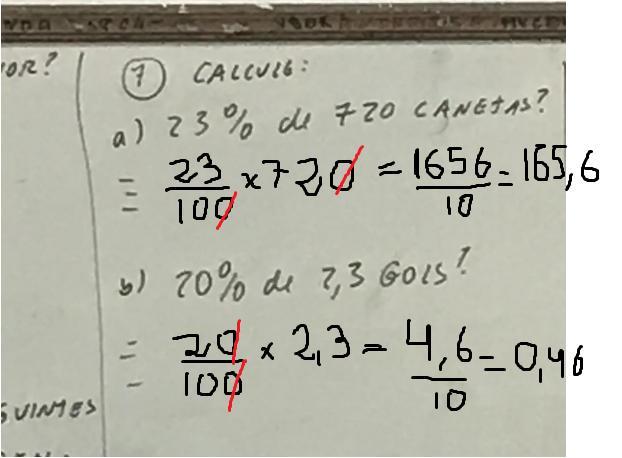 OR?
7 CALCULE:
a) 23% de 720 CANETAS?
= 23/100 x 720 = 1656/10 = 165,6
b) 20% de 2,3 GOLS?
= 20/100 x 2,3 = 4,6/10 = 0,46
GUINTES